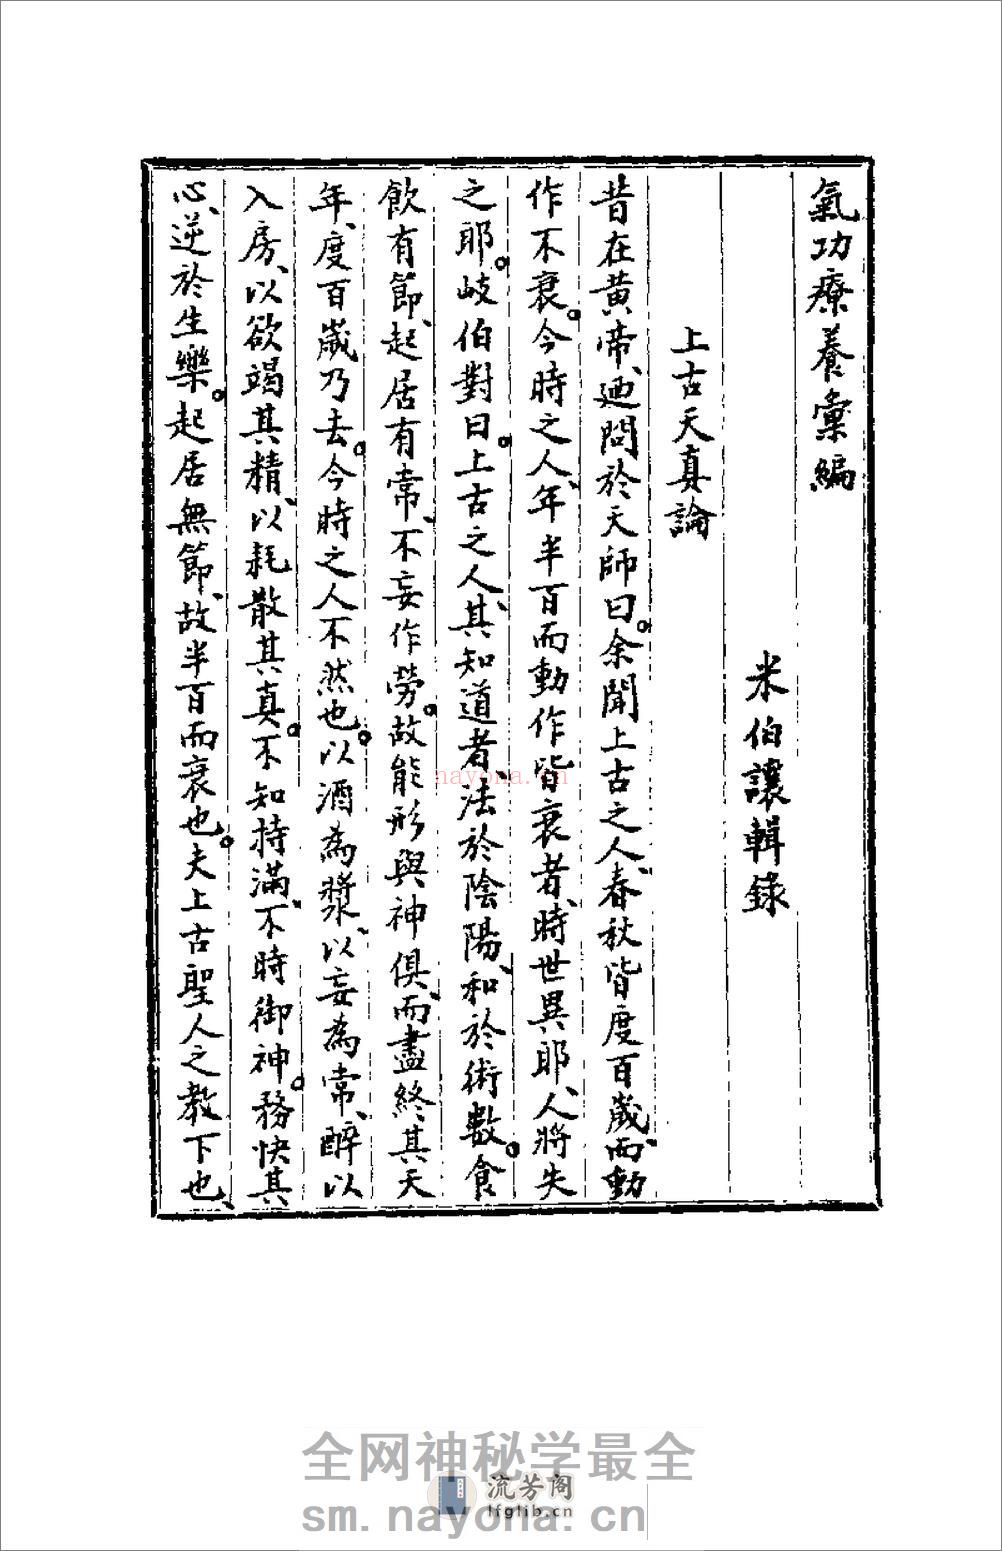 氣功療養彙編
米伯讓輯錄
上古天真論
昔在黃帝、迺問於天師曰。余聞上古之人、春秋皆度百歲、而動
作不衰。今時之人、年半百而動作皆衰者、時世異耶、人將失
之耶。岐伯對曰。上古之人、其知道者、法於陰陽、和於術數。食
飲有節、起居有常、不妄作勞。故能形與神俱、而盡終其天
年、度百歲乃去。今時之人不然也。以酒為漿、以妄為常、醉以
入房、以欲竭其精、以耗散其真。不知持滿、不時御神。務快其
心、逆於生樂。起居無節、故半百而衰也。夫上古聖人之教下也、
nayona.cn
全网神秘学最全
流芳阁
lfglib.cn
sm.nayona.cn